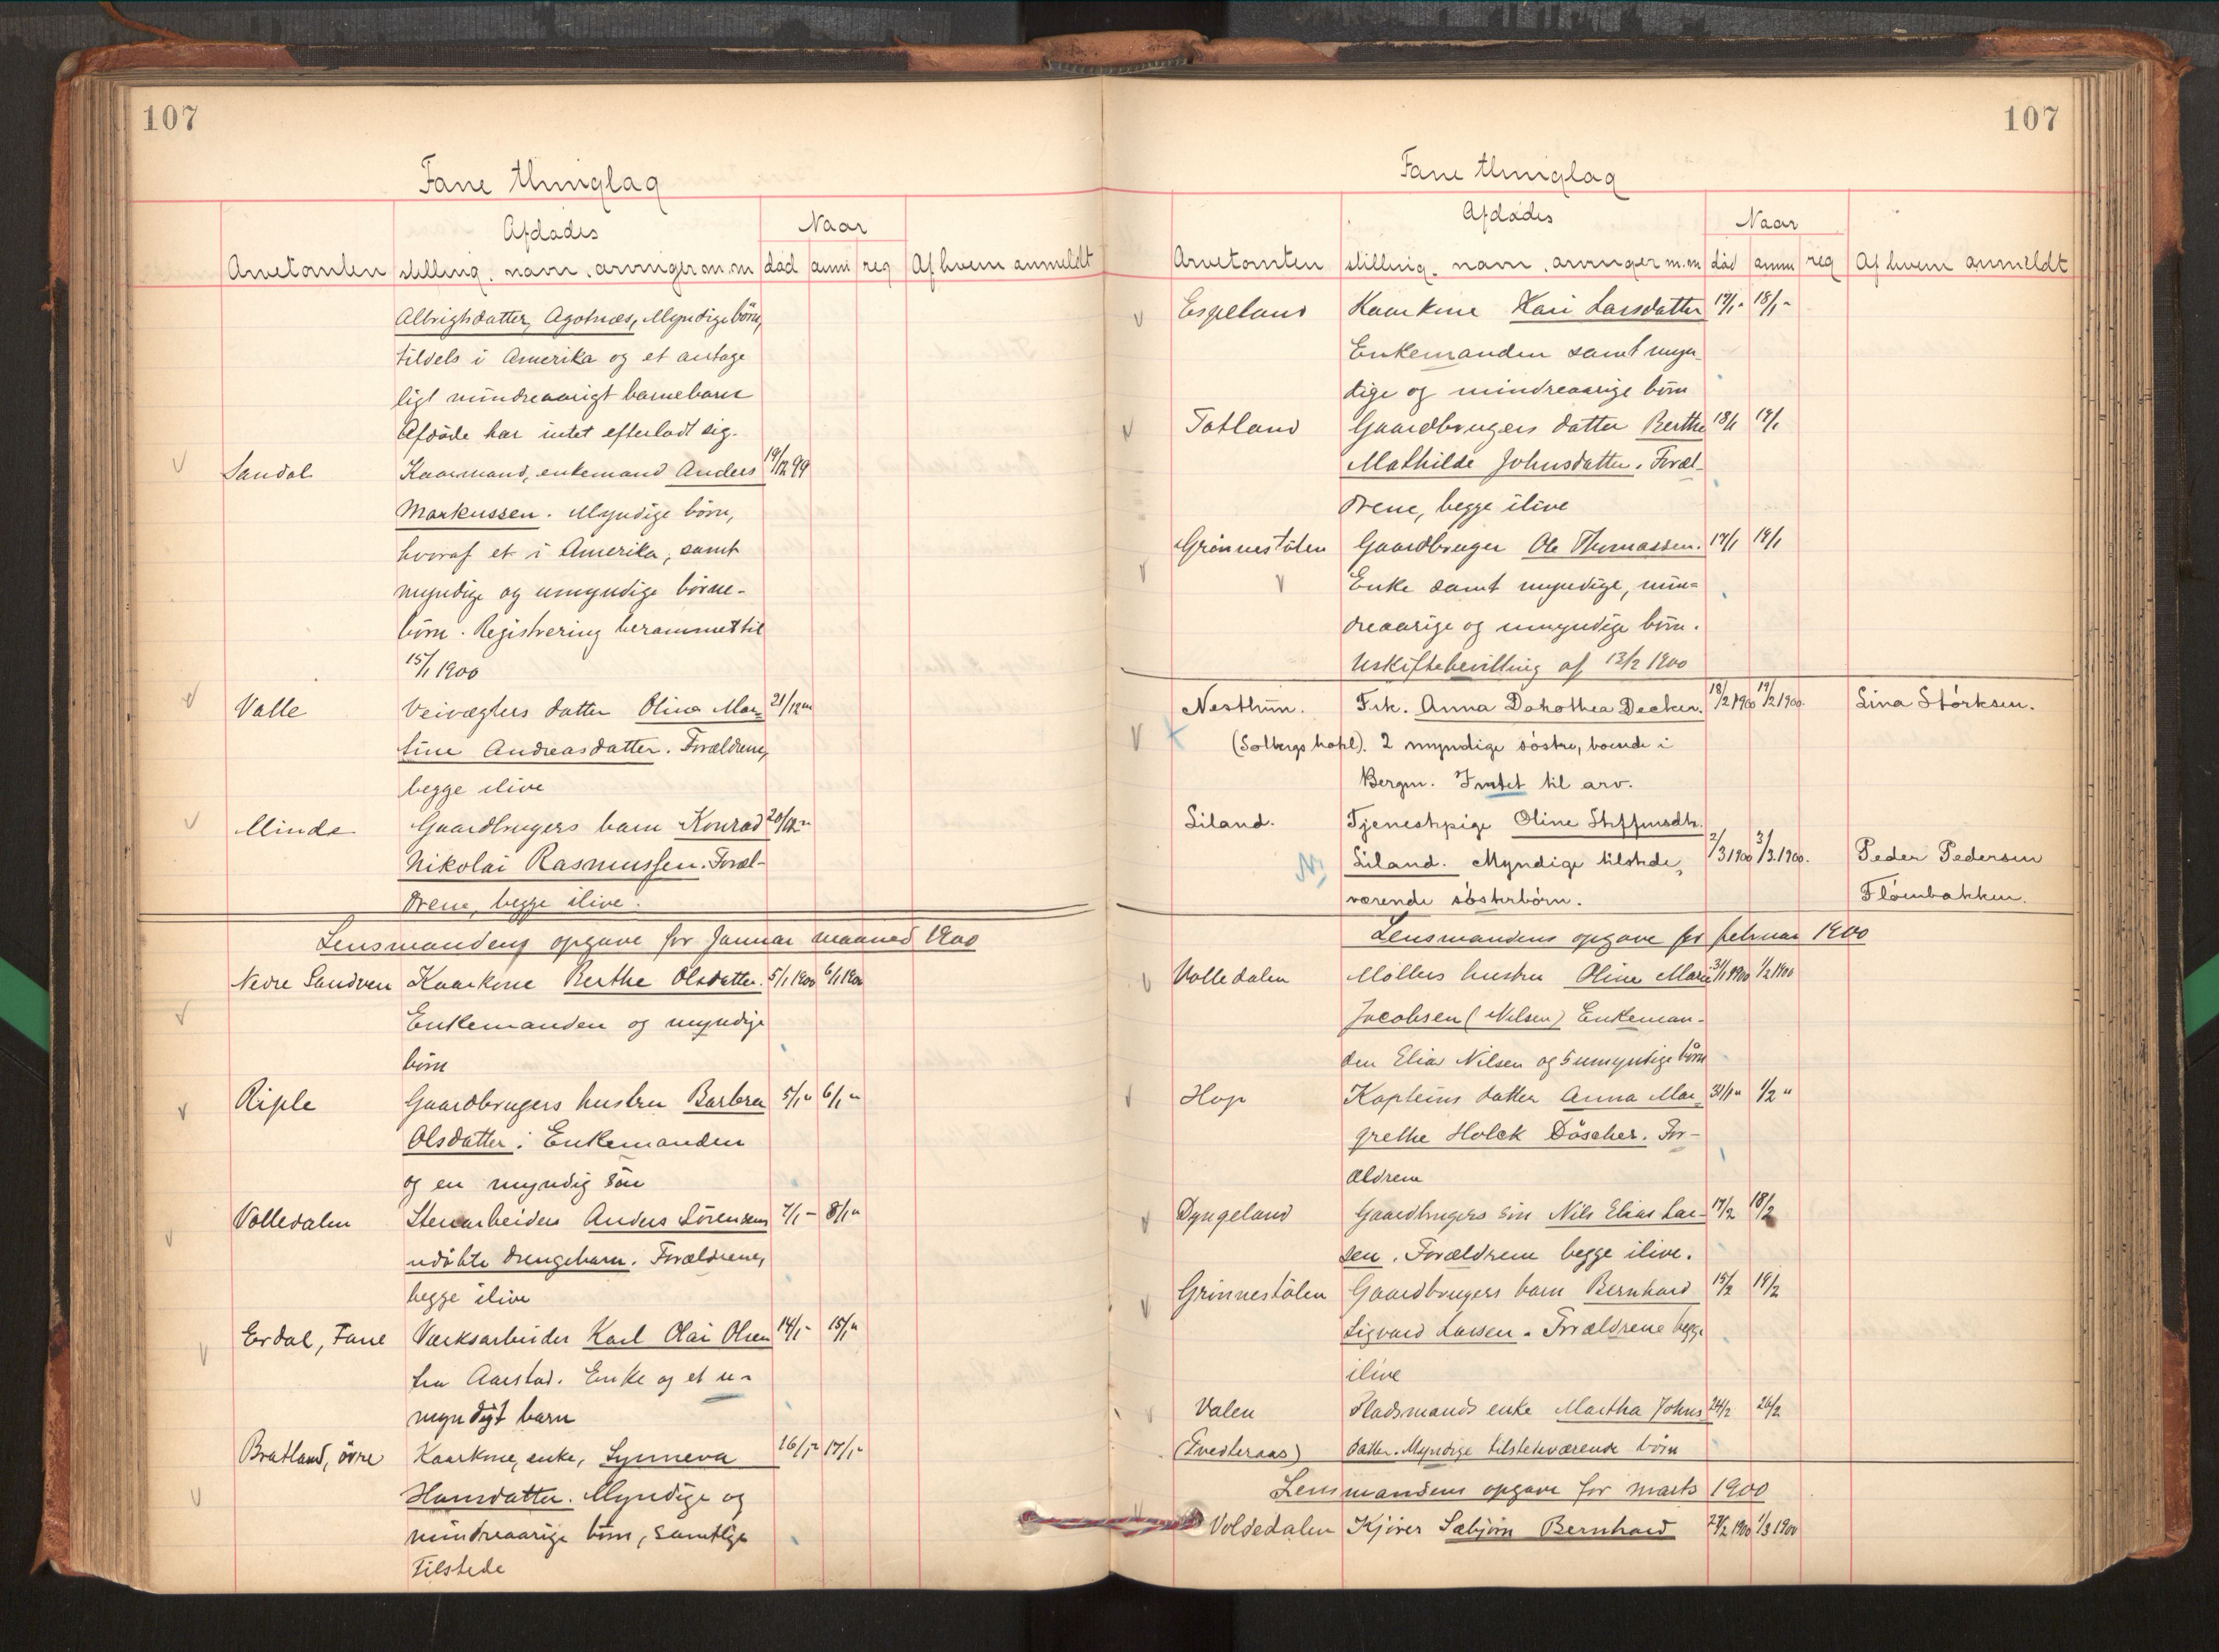 107
Fane thinglag
Afdødes
Naar
Arvetomten stilling, navn, arvinger m.m død anm reg Af hvem anmeldt
Albrigtsdatter, Agotnæs, Myndige børn,
tildels i Amerika og et antage
ligt mindreaarigt barnebarn
Afdøde har intet efterladt sig.
Sandal Kaarmand, enkemand Anders 19/12 99
Markussen. Myndige børn,
hvoraf et i Amerika, samt
myndige og umyndige børne-
børn. Registrering berammet til
15/1 1900
Valle Veivogters datter Olina Mar- 21/12 "
tine Andreasdatter. Forældrene,
begge ilive
Minde Gaardbrugers barn Konrad 20/12 "
Nikolai Rasmussen. Foræl-
drene, begge ilive.
Lensmandens opgave for Januar maaned 1900
Nedre Sandven Kaarkone Berthe Olsdatter. 5/1 1900 6/1 1900
Enkemanden og myndige
børn
Riple Gaardbrugers hustru Barbra 5/1 " 6/1 "
Olsdatter. Enkemanden
og en myndig søn
Volledalen Stenarbeider Anders Sørensens 7/1 - 8/1 "
udøbte drengebarn. Forældrene,
begge ilive
Erdal, Fane Værksarbeider Karl Olai Olsen 14/1 - 15/1 "
fra Aarstad. Enke og et u-
myndigt barn
Bratland, øvre Kaarkone, enke, Synneva 16/1 " 17/1 "
Hansdatter. Myndige og
mindreaarige børn, samtlige
tilstede
107
Fane thinglag
Afdødes
Naar
Arvetomten stilling, navn, arvinger m.m død anm reg Af hvem anmeldt
Espeland Kaarkone Kari Larsdatter 17/1 " 18/1 "
Enkemanden samt myn-
dige og mindreaarige børn
Totland Gaardbrugers datter Berthe 18/1 19/1
Mathilde Johnsdatter. Foræl-
drene, begge ilive
Grönnestölen Gaardbruger Ole Thomassen. 17/1 19/1
Enke samt myndige, min-
dreaarige og umyndige børn.
Uskiftebevilling af 13/2 1900
Nesttun. Frk. Anna Dorothea Decker. 18/2 1900 19/2 1900. Lina Størksen.
(Solbergs hotel). 2 myndige søstre, boende i
Bergen. Intet til arv.
Liland. Tjenestepige Oline Steffensdtr.
Liland. Myndige tilstede- 2/3 1900 3/3. 1900. Peder Pedersen
værende søsterbørn. Fløenbakken.
Lensmandens opgave for februar 1900
Volledalen Møllers hustru Oline Marie 31/1 1900 1/2 1900
Jacobsen (Nilsen) Enkeman-
den Elias Nilsen og 5 umyndige børn
Hop Kapteins datter Anna Mar- 31/1 " 1/2 "
grethe Holck Döscher. For-
ældrene
Dyngeland Gaardbrugers søn Nils Elias Lar- 17/2 18/2
sen. Forældrene begge ilive.
Grönnestölen Gaardbrugers barn Bernhard 15/2 19/2
Sigvard Larsen. Forældrene begge
ilive
Valen Pladsmands enke Martha Johns 24/2 26/2
(Tvedteraas) datter. Myndige tilstedeværende børn
Lensmandens opgave for marts 1900
Voldedalen Kjører Sæbjørn Bernhard 27/2 1900 1/3 1900